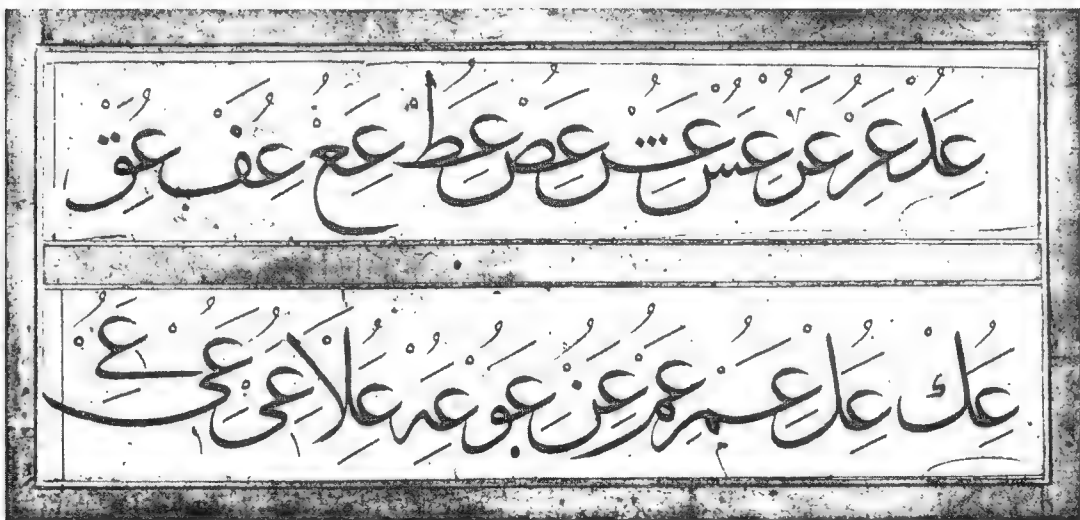 عد عر عن عس عش عص عط عع عف عق
عك عل عم عم عن عو عه علا عى عى عے